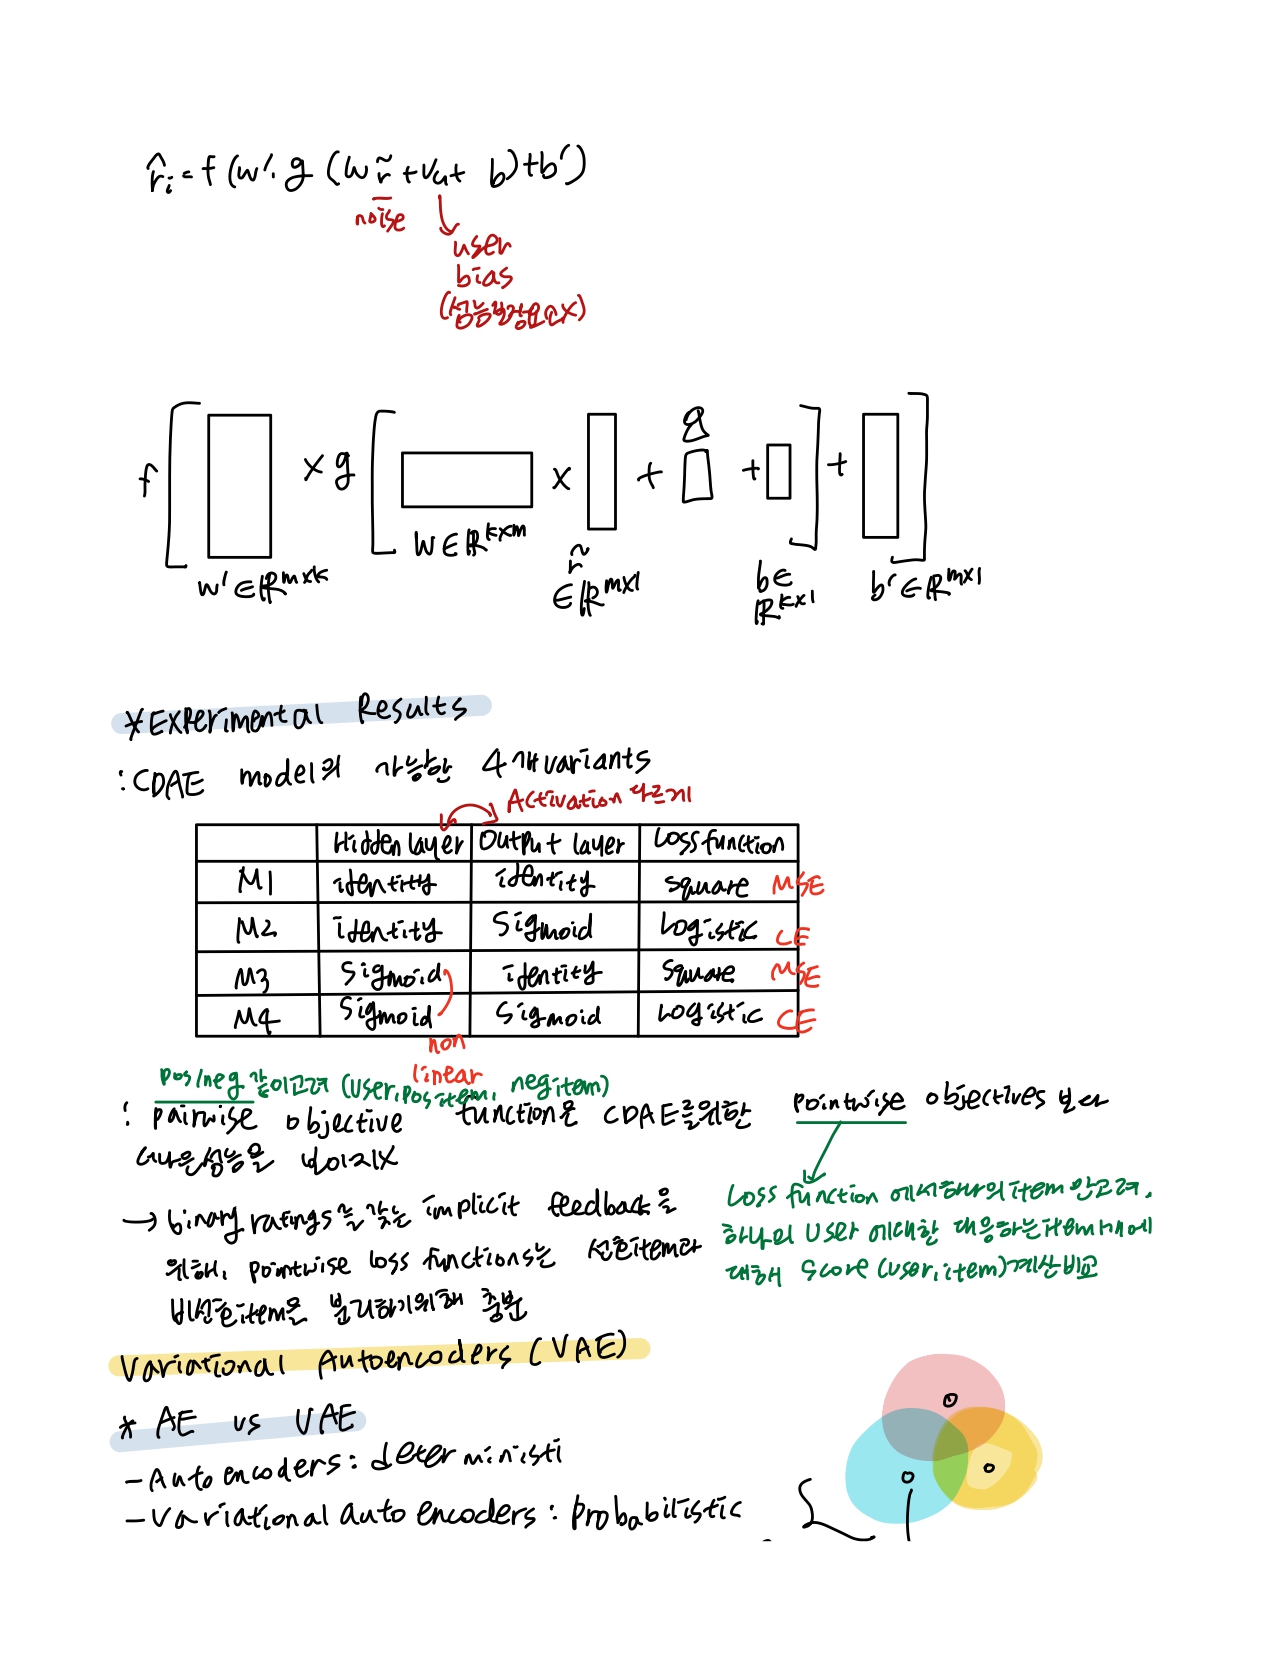 r̂i = f (w'· g (w r̃ + Vu + b) + b')
noise
user
bias
(성능결정요소X)
f [ × g [ × + + ] + ]
W ∈ ℝ^k×m
w' ∈ ℝ^m×k
r̃
∈ ℝ^m×1
b ∈
ℝ^k×1
b' ∈ ℝ^m×1
* Experimental Results
: CDAE model의 가능한 4개 variants
Activation 다르게
Hidden layer Output layer Loss function
M1 identity identity square MSE
M2 identity Sigmoid Logistic CE
M3 Sigmoid identity Square MSE
M4 Sigmoid Sigmoid Logistic CE
non
linear
pos/neg 같이고려 (user, pos item, neg item)
: pairwise objective function은 CDAE를위한 pointwise objectives 보다
더나은성능을 보이지X
→ binary ratings을 갖는 implicit feedback을
위해, pointwise loss functions는 선호item과
비선호item은 분리하기위해 충분
Loss function 에서하나의item만고려.
하나의 User 에대한 대응하는item 1개에
대해 Score (user, item)계산비교
Variational Autoencoders (VAE)
* AE vs VAE
- Auto encoders : deterministi
- Variational auto encoders : probabilistic